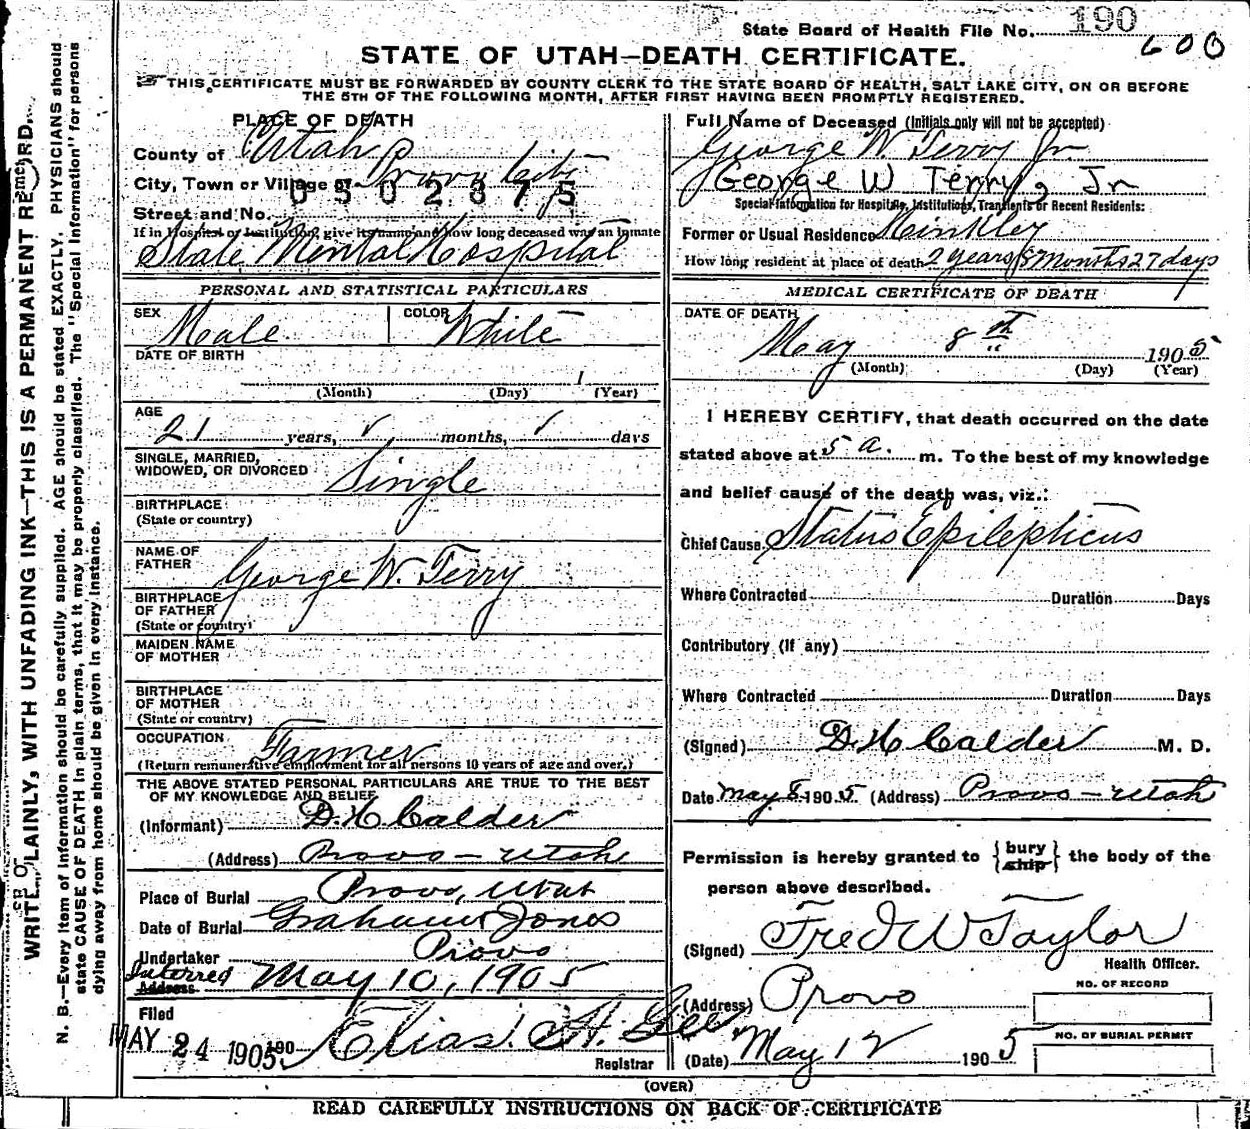 State Board of Health File No. 190
600
STATE OF UTAH—DEATH CERTIFICATE.
THIS CERTIFICATE MUST BE FORWARDED BY COUNTY CLERK TO THE STATE BOARD OF HEALTH, SALT LAKE CITY, ON OR BEFORE
THE 5TH OF THE FOLLOWING MONTH, AFTER FIRST HAVING BEEN PROMPTLY REGISTERED.
WRITE PLAINLY, WITH UNFADING INK—THIS IS A PERMANENT RECORD.
N. B.—Every item of information should be carefully supplied. AGE should be stated EXACTLY. PHYSICIANS should
state CAUSE OF DEATH in plain terms, that it may be properly classified. The "Special Information" for persons
dying away from home should be given in every instance.
PLACE OF DEATH
County of Utah
City, Town or Village of Provo City
0502375
Street and No.
If in Hospital or Institution, give its name and how long deceased was an inmate
State Mental Hospital
PERSONAL AND STATISTICAL PARTICULARS
SEX Male COLOR White
DATE OF BIRTH
(Month) (Day) 1 (Year)
AGE
21 years, ✓ months, ✓ days
SINGLE, MARRIED,
WIDOWED, OR DIVORCED Single
BIRTHPLACE
(State or country)
NAME OF
FATHER George W. Terry
BIRTHPLACE
OF FATHER
(State or country)
MAIDEN NAME
OF MOTHER
BIRTHPLACE
OF MOTHER
(State or country)
OCCUPATION Farmer
(Return remunerative employment for all persons 10 years of age and over.)
THE ABOVE STATED PERSONAL PARTICULARS ARE TRUE TO THE BEST
OF MY KNOWLEDGE AND BELIEF
(Informant) D. H. Calder
(Address) Provo — Utah
Place of Burial Provo, Utah
Date of Burial Graham Jones
Undertaker Provo
Interred
Address May 10, 1905
Filed
MAY 24 1905 190 Elias A. Gee
Registrar
Full Name of Deceased (Initials only will not be accepted)
George W Terry Jr
George W Terry, Jr
Special Information for Hospitals, Institutions, Transients or Recent Residents:
Former or Usual Residence Hinkley
How long resident at place of death 2 years 8 months 27 days
MEDICAL CERTIFICATE OF DEATH
DATE OF DEATH
May 8th 1905
(Month) (Day) (Year)
I HEREBY CERTIFY, that death occurred on the date
stated above at 5 a. m. To the best of my knowledge
and belief cause of the death was, viz.:
Chief Cause. Status Epilepticus
Where Contracted Duration Days
Contributory (If any)
Where Contracted Duration Days
(Signed) D. H. Calder M. D.
Date May 8 1905. (Address) Provo — Utah
Permission is hereby granted to {bury ship} the body of the
person above described.
(Signed) Fred W Taylor
Health Officer.
(Address) Provo
NO. OF RECORD
(Date) May 12 1905
NO. OF BURIAL PERMIT
(OVER)
READ CAREFULLY INSTRUCTIONS ON BACK OF CERTIFICATE